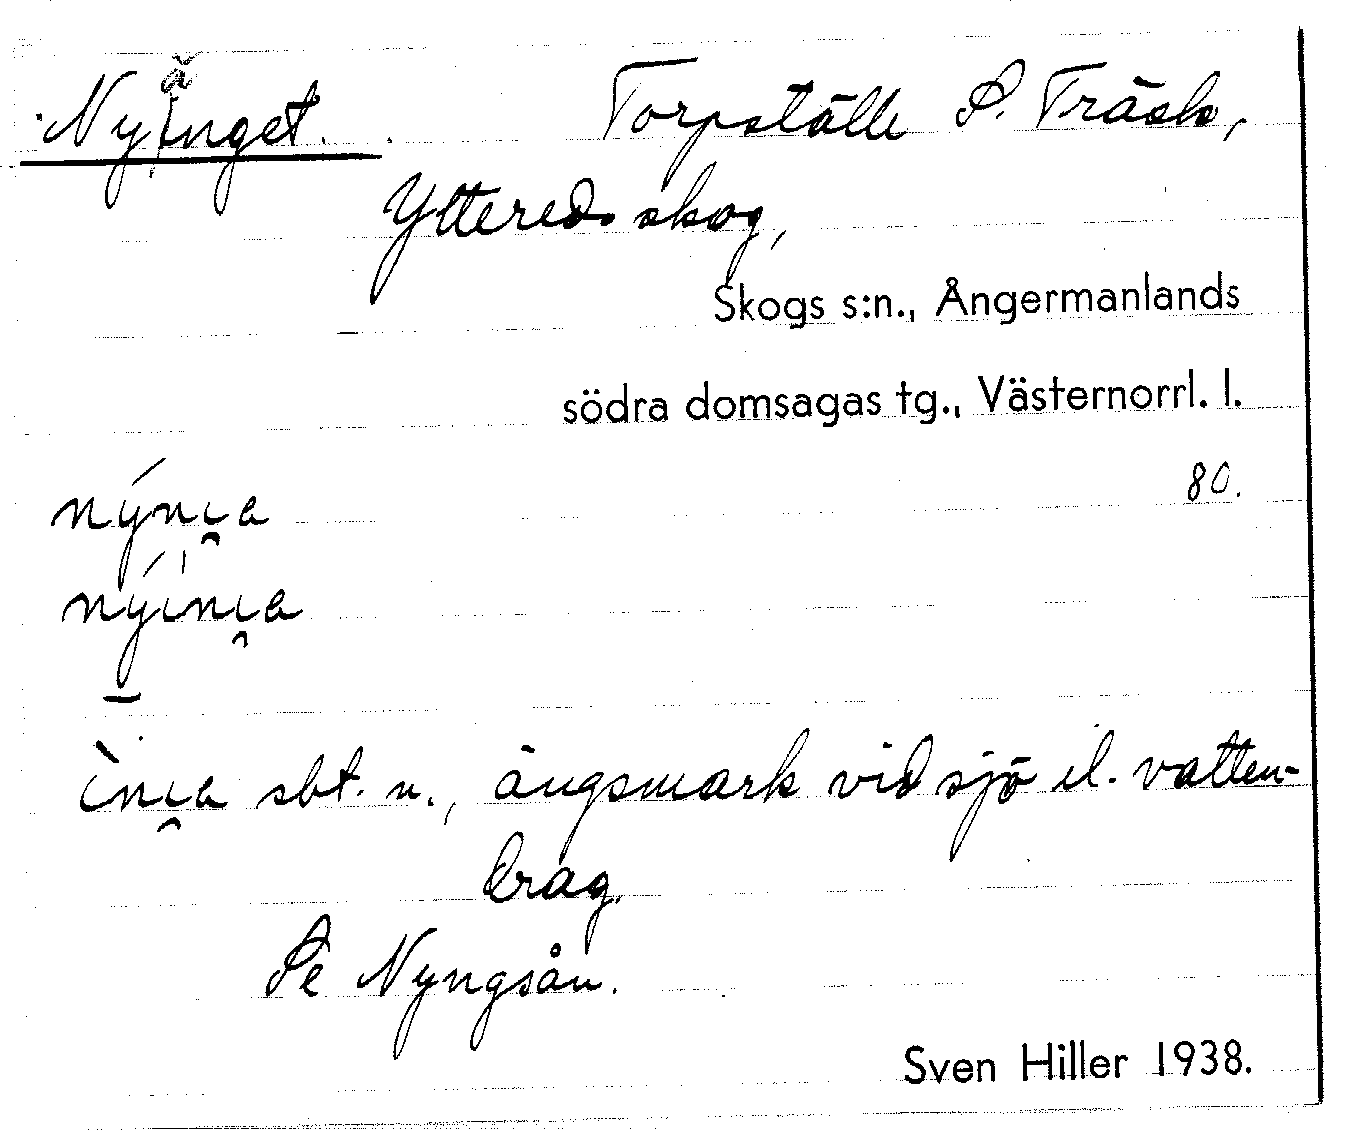 Nyänget. Torpställe S. Träsk,
Yttereds skog,
Skogs s:n., Ångermanlands
södra domsagas tg., Västernorrl. l.
80.
ängsmark vid sjö el. vatten-
drag.
Se Nyngsån.
Sven Hiller 1938.